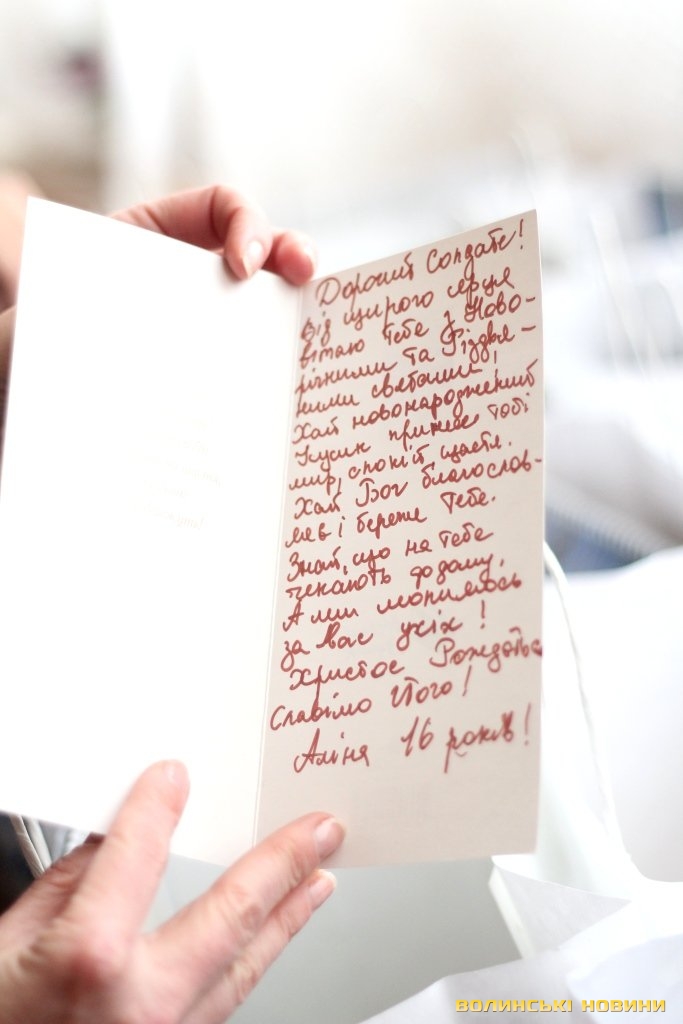 Дорогий Солдате!
Від щирого серця
вітаю тебе з Ново-
річними та Різдвя-
ними святами!
Хай новонароджений
Ісусик принесе тобі
мир, спокій щастя.
Хай Бог благослов-
ляє і береже тебе.
Знай, що на тебе
чекають додому.
А ми молимось
за вас усіх!
Христос Рождаєтьс
Славімо Його!
Аліна 16 років!
ВОЛИНСЬКІ НОВИНИ